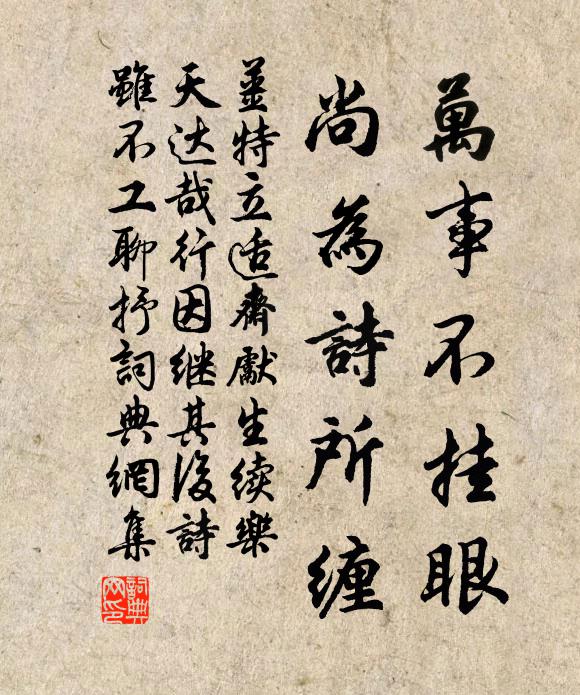 萬事不挂眼
尚為詩所纏
姜特立适齋獻生续樂
天达哉行因继其後詩
雖不工聊抒詞典網集
詞典网印